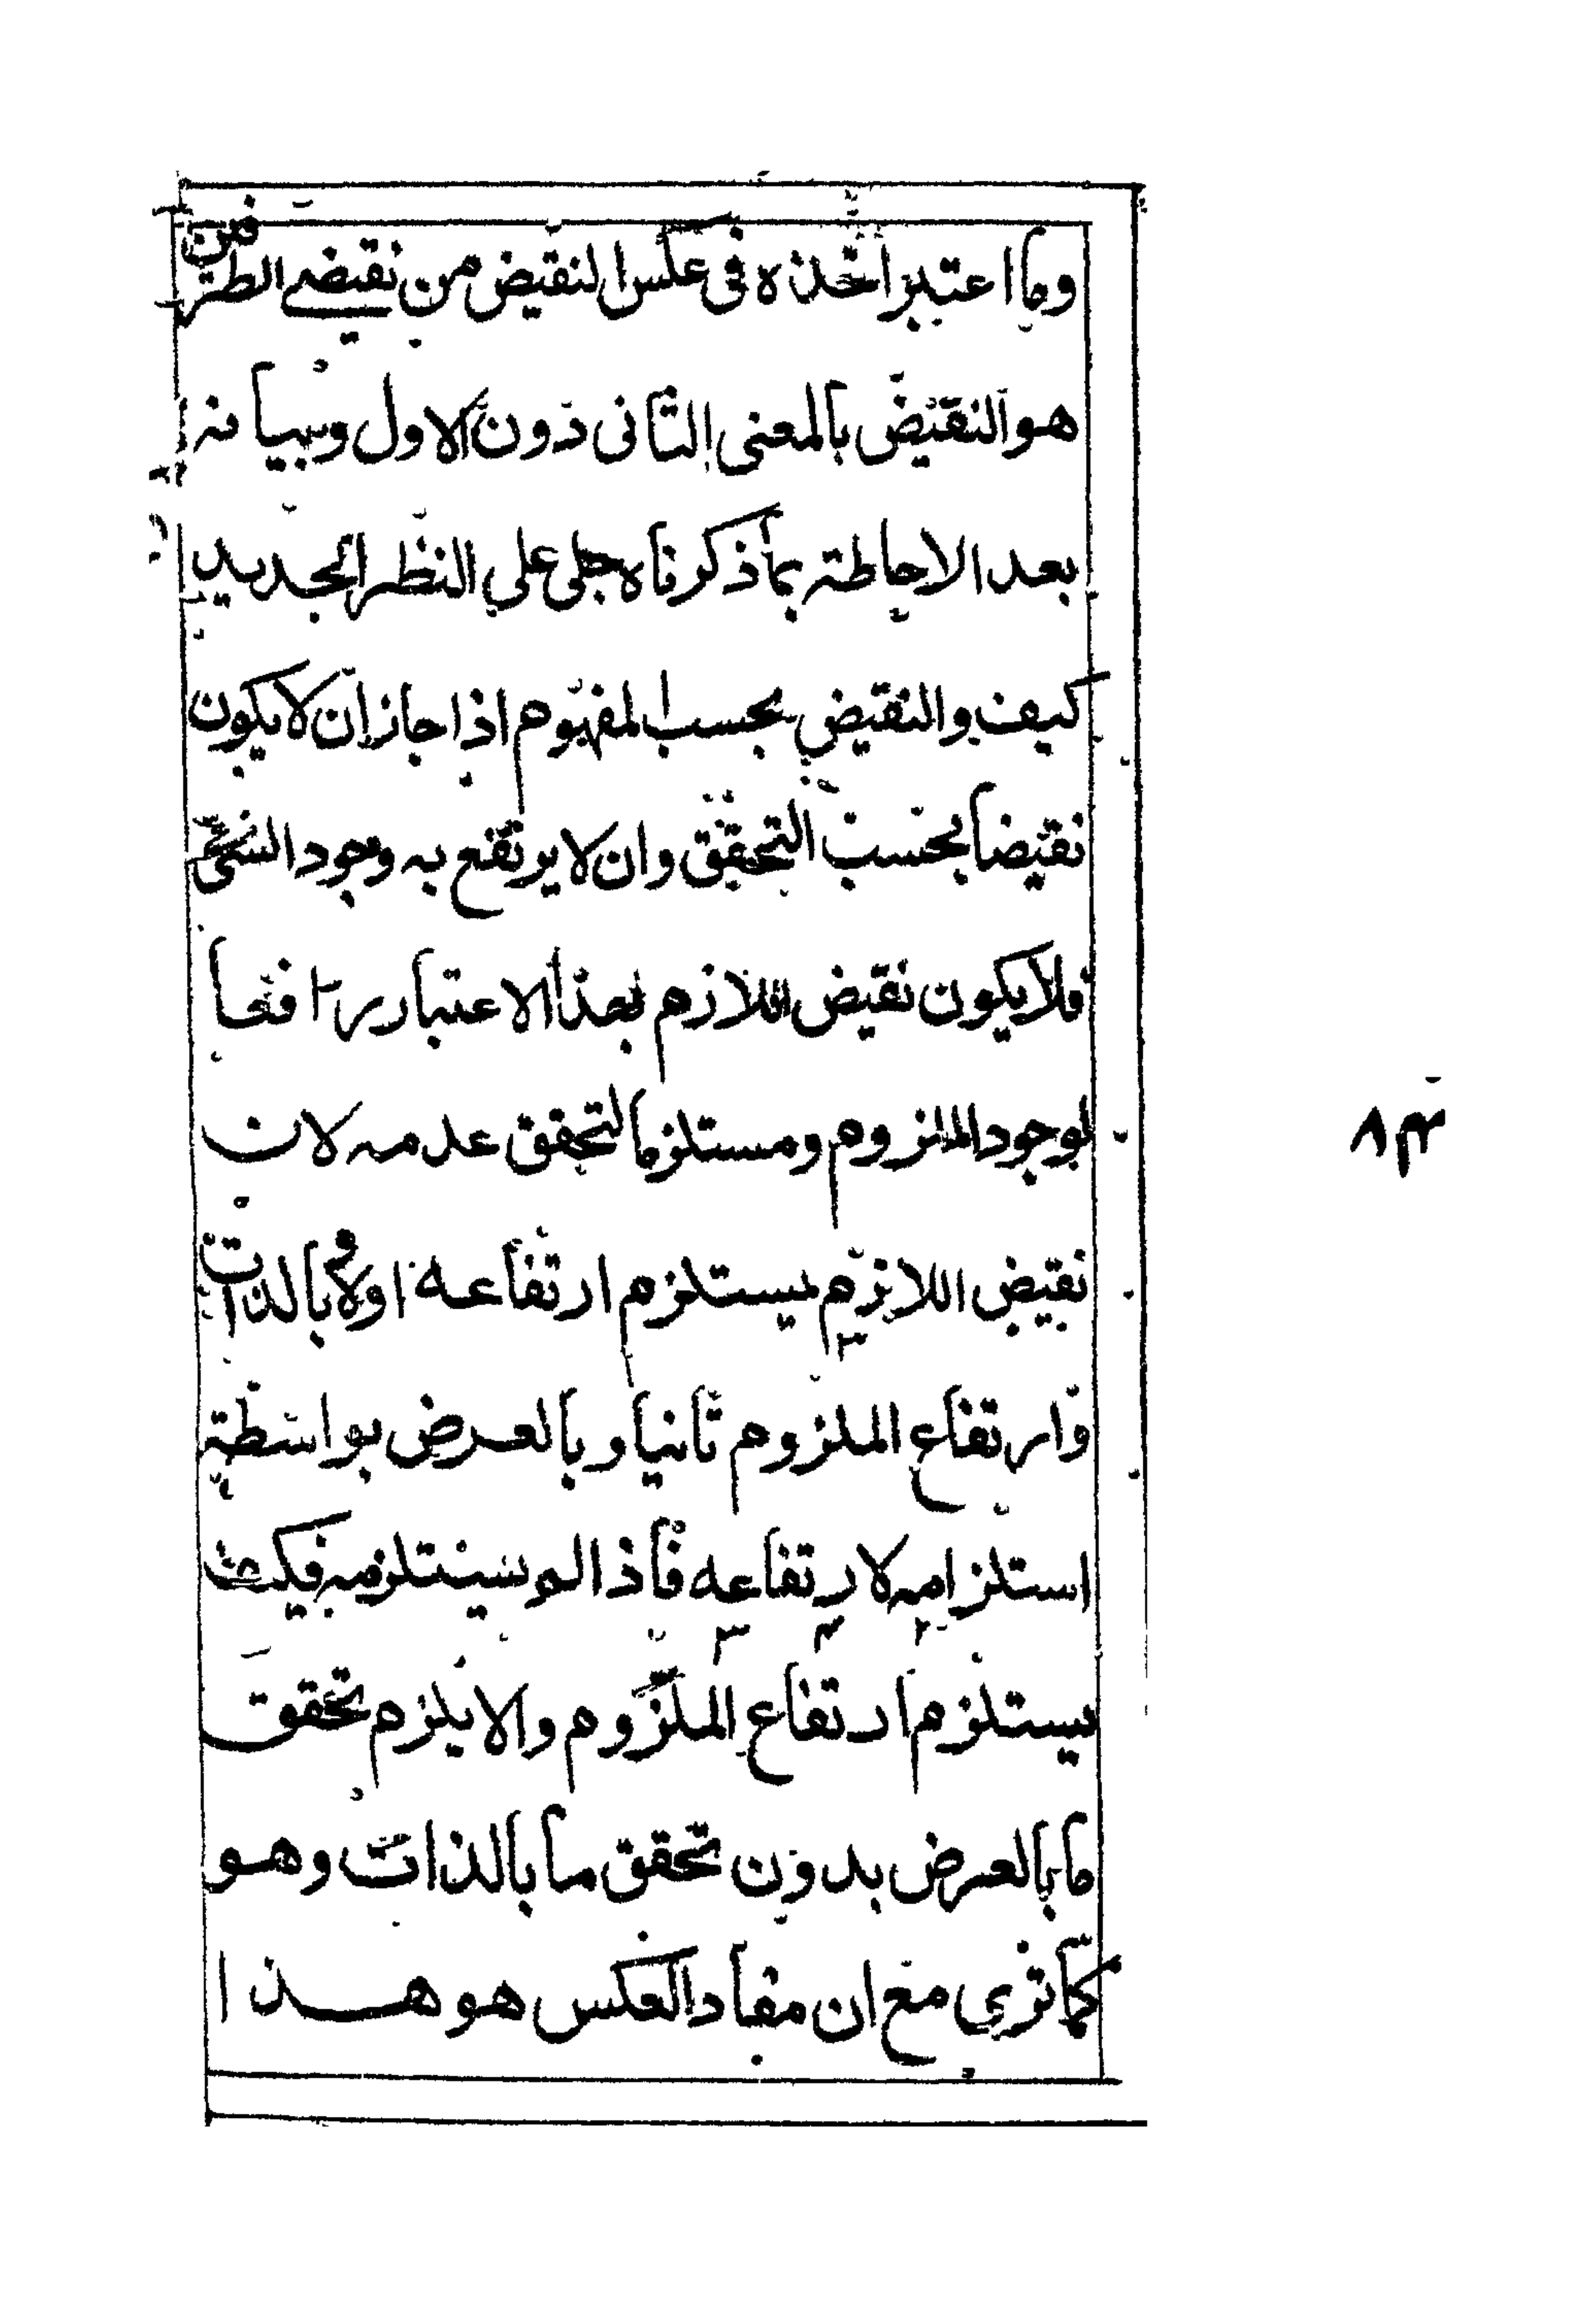 وما اعتبر اخذه فى عكس النقيض من نقيضے الطرفين
هو النقيض بالمعنى الثانى دون الاول وبيانه
بعد الاحاطة بما ذكرناه جلى على النظر الحديد
كيف والنقيض بحسب المفهوم اذا جاز ان لا يكون
نقيضا بحسب التحقق وان لا يرتفع به وجود الشئ
فلا يكون نقيض اللازم بهذا الاعتبار رافعا
لوجود الملزوم ومستلزما لتحقق عدمه لان
نقيض اللازم يستلزم ارتفاعه اولا وبالذات
وارتفاع الملزوم ثانيا وبالعرض بواسطة
استلزامه لارتفاعه فاذا لم يستلزمه فكيف
يستلزم ارتفاع الملزوم والا يلزم تحقق
ما بالعرض بدون تحقق ما بالذات وهو
كما ترى مع ان مفاد العكس هو هذا